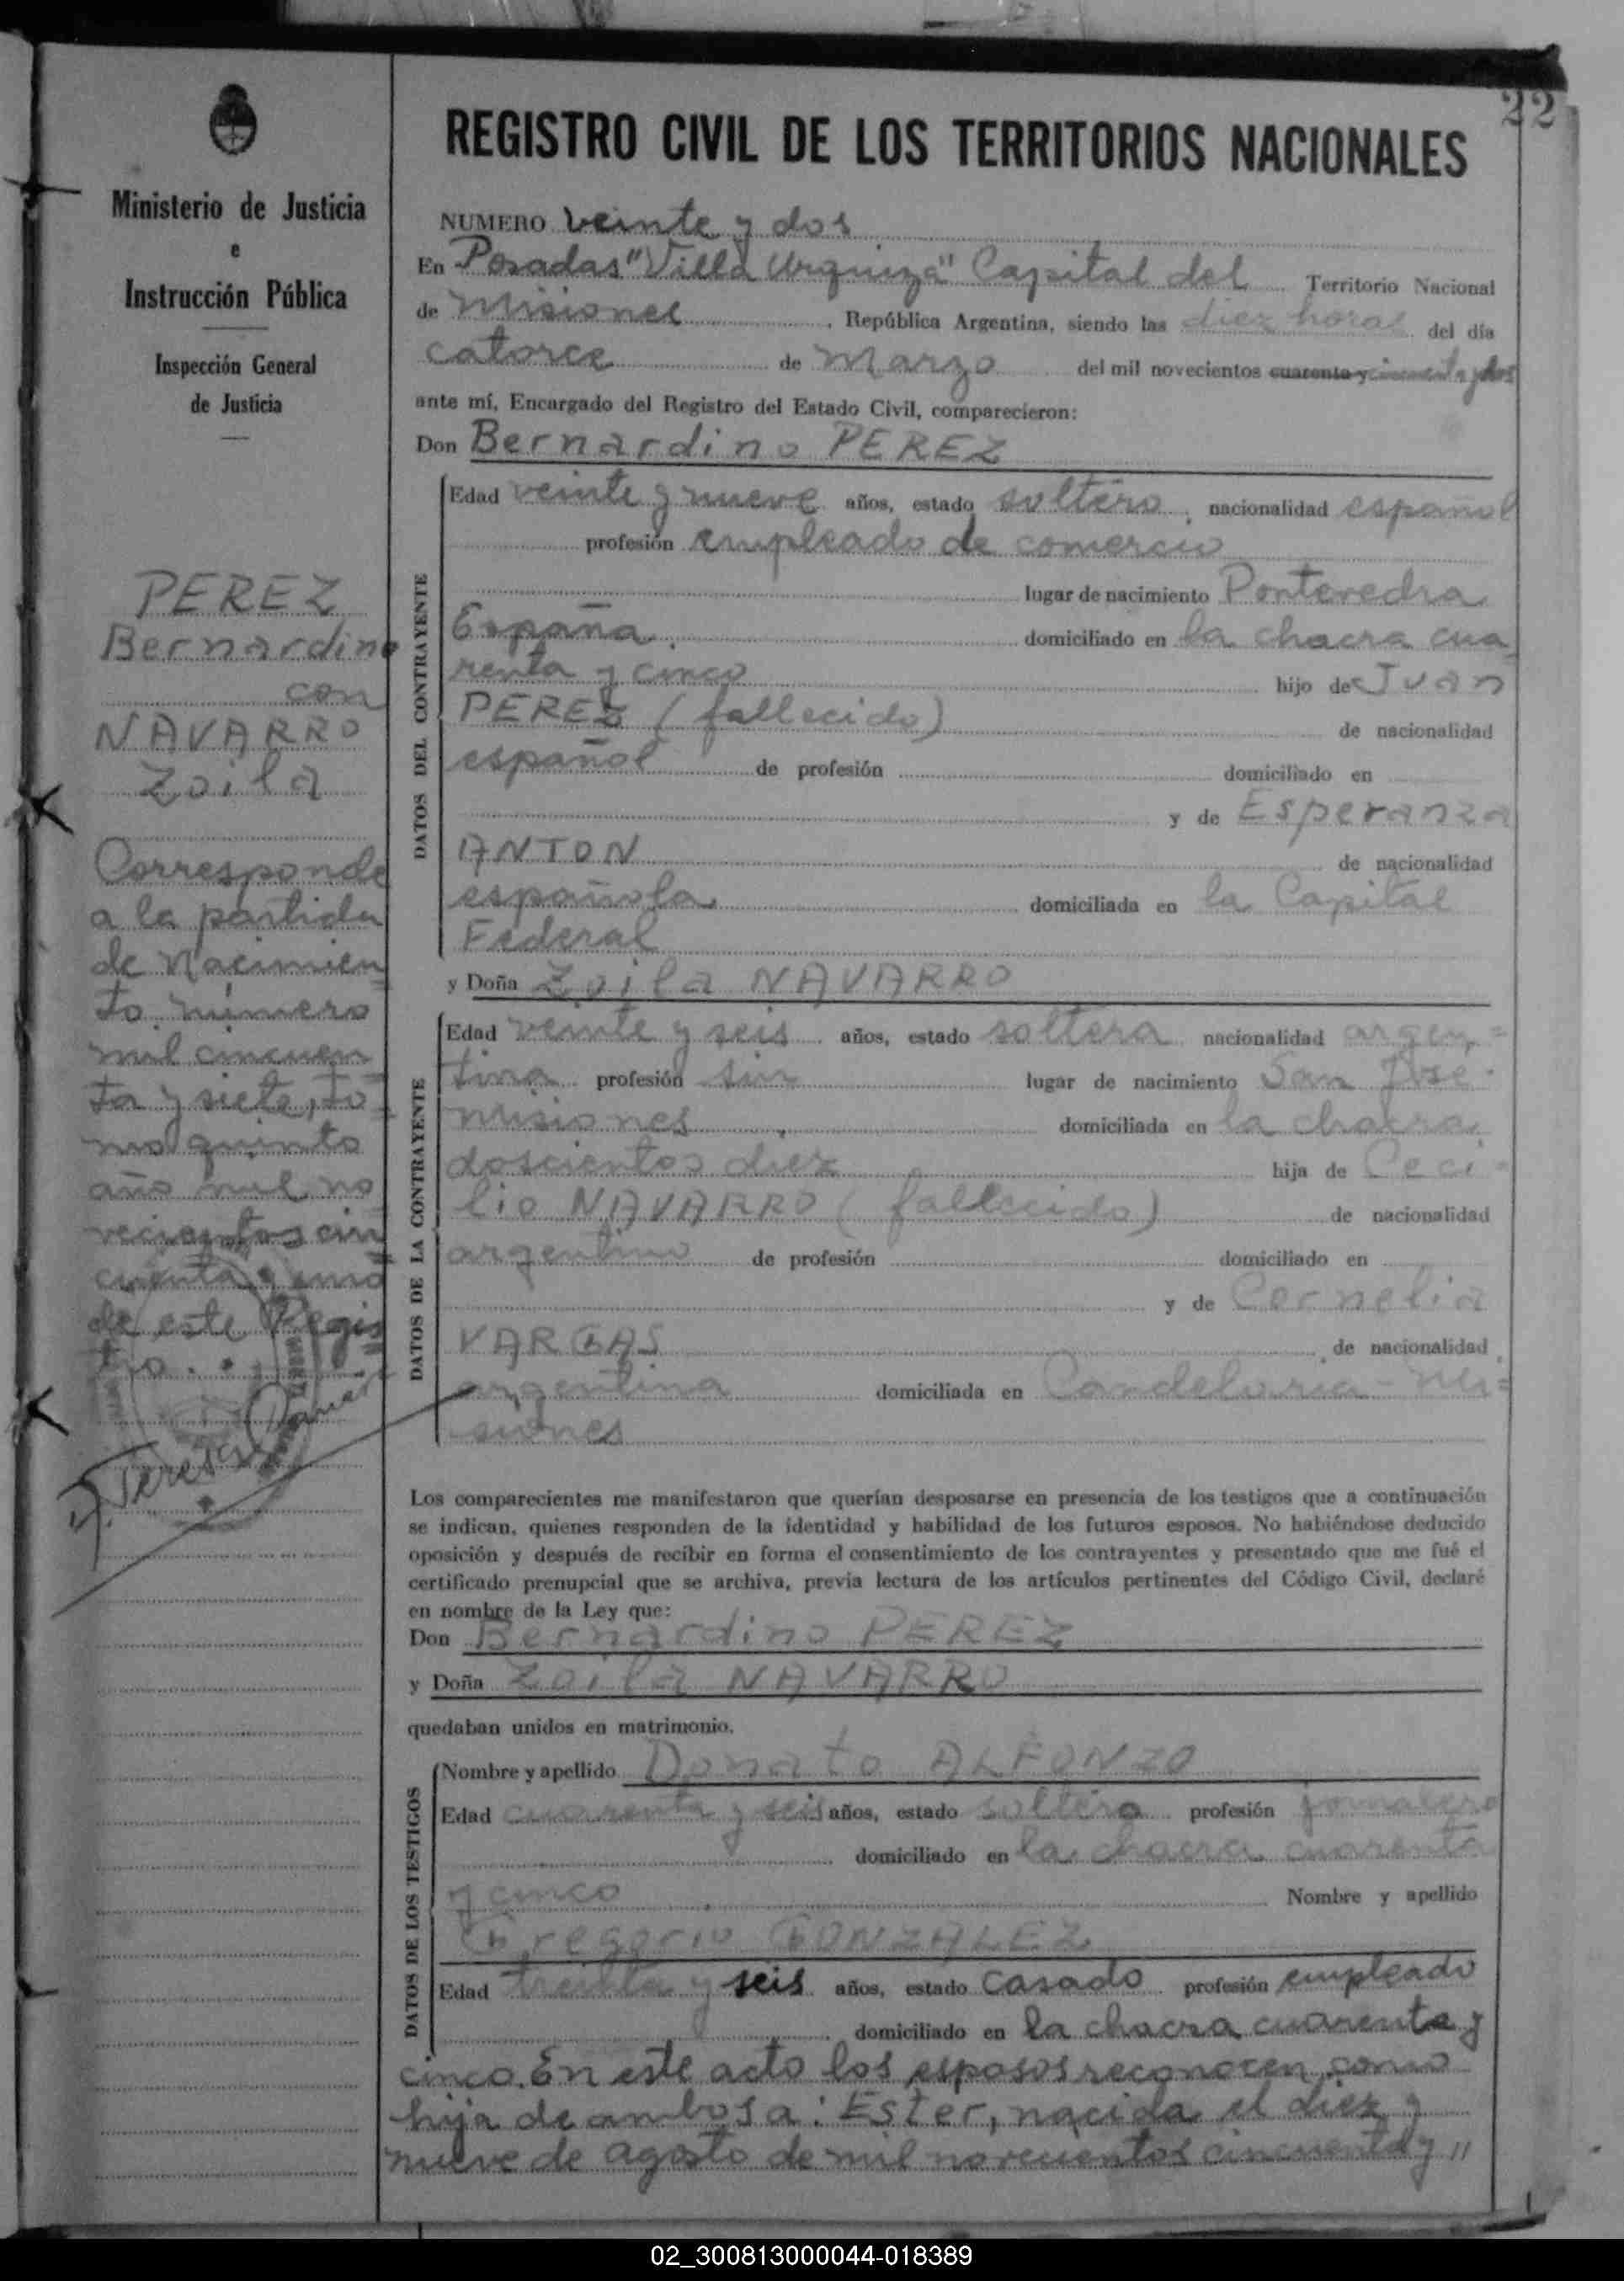 22
Ministerio de Justicia
e
Instrucción Pública
Inspección General
de Justicia
PEREZ
Bernardino
con
NAVARRO
Zoila
Corresponde
a la partida
de Nacimien
to número
mil cincuen
ta y siete, to
mo quinto
año mil no
vecientos cin
cuenta y uno
de este Regis
tro.
REGISTRO CIVIL DE LOS TERRITORIOS NACIONALES
NUMERO veinte y dos
En Posadas "Villa Urquiza" Capital del Territorio Nacional
de Misiones, República Argentina, siendo las diez horas del día
catorce de Marzo del mil novecientos cuarenta y cincuenta y dos
ante mí, Encargado del Registro del Estado Civil, comparecieron:
Don Bernardino PEREZ
DATOS DEL CONTRAYENTE
Edad veinte y nueve años, estado soltero, nacionalidad español
profesión empleado de comercio
lugar de nacimiento Pontevedra
España. domiciliado en la chacra cua
renta y cinco hijo de Juan
PEREZ (fallecido) de nacionalidad
español de profesión domiciliado en
y de Esperanza
ANTON de nacionalidad
española domiciliada en la Capital
Federal
y Doña Zoila NAVARRO
DATOS DE LA CONTRAYENTE
Edad veinte y seis años, estado soltera nacionalidad argen=
tina profesión sin lugar de nacimiento San José
misiones domiciliada en la chacra
doscientos diez hija de Ceci=
lio NAVARRO (fallecido) de nacionalidad
argentino de profesión domiciliado en
y de Cornelia
VARGAS de nacionalidad
argentina domiciliada en Candelaria - Mi=
siones
Los comparecientes me manifestaron que querían desposarse en presencia de los testigos que a continuación
se indican, quienes responden de la identidad y habilidad de los futuros esposos. No habiéndose deducido
oposición y después de recibir en forma el consentimiento de los contrayentes y presentado que me fué el
certificado prenupcial que se archiva, previa lectura de los artículos pertinentes del Código Civil, declaré
en nombre de la Ley que:
Don Bernardino PEREZ
y Doña Zoila NAVARRO
quedaban unidos en matrimonio.
DATOS DE LOS TESTIGOS
Nombre y apellido Donato ALFONZO
Edad cuarenta y seis años, estado soltero profesión jornalero
domiciliado en la chacra cuarenta
y cinco Nombre y apellido
Gregorio GONZALEZ
Edad treinta y seis años, estado casado profesión empleado
domiciliado en la chacra cuarenta y
cinco. En este acto los esposos reconocen como
hija de ambos a: Ester, nacida el diez y
nueve de agosto de mil novecientos cincuenta y "
02_300813000044-018389